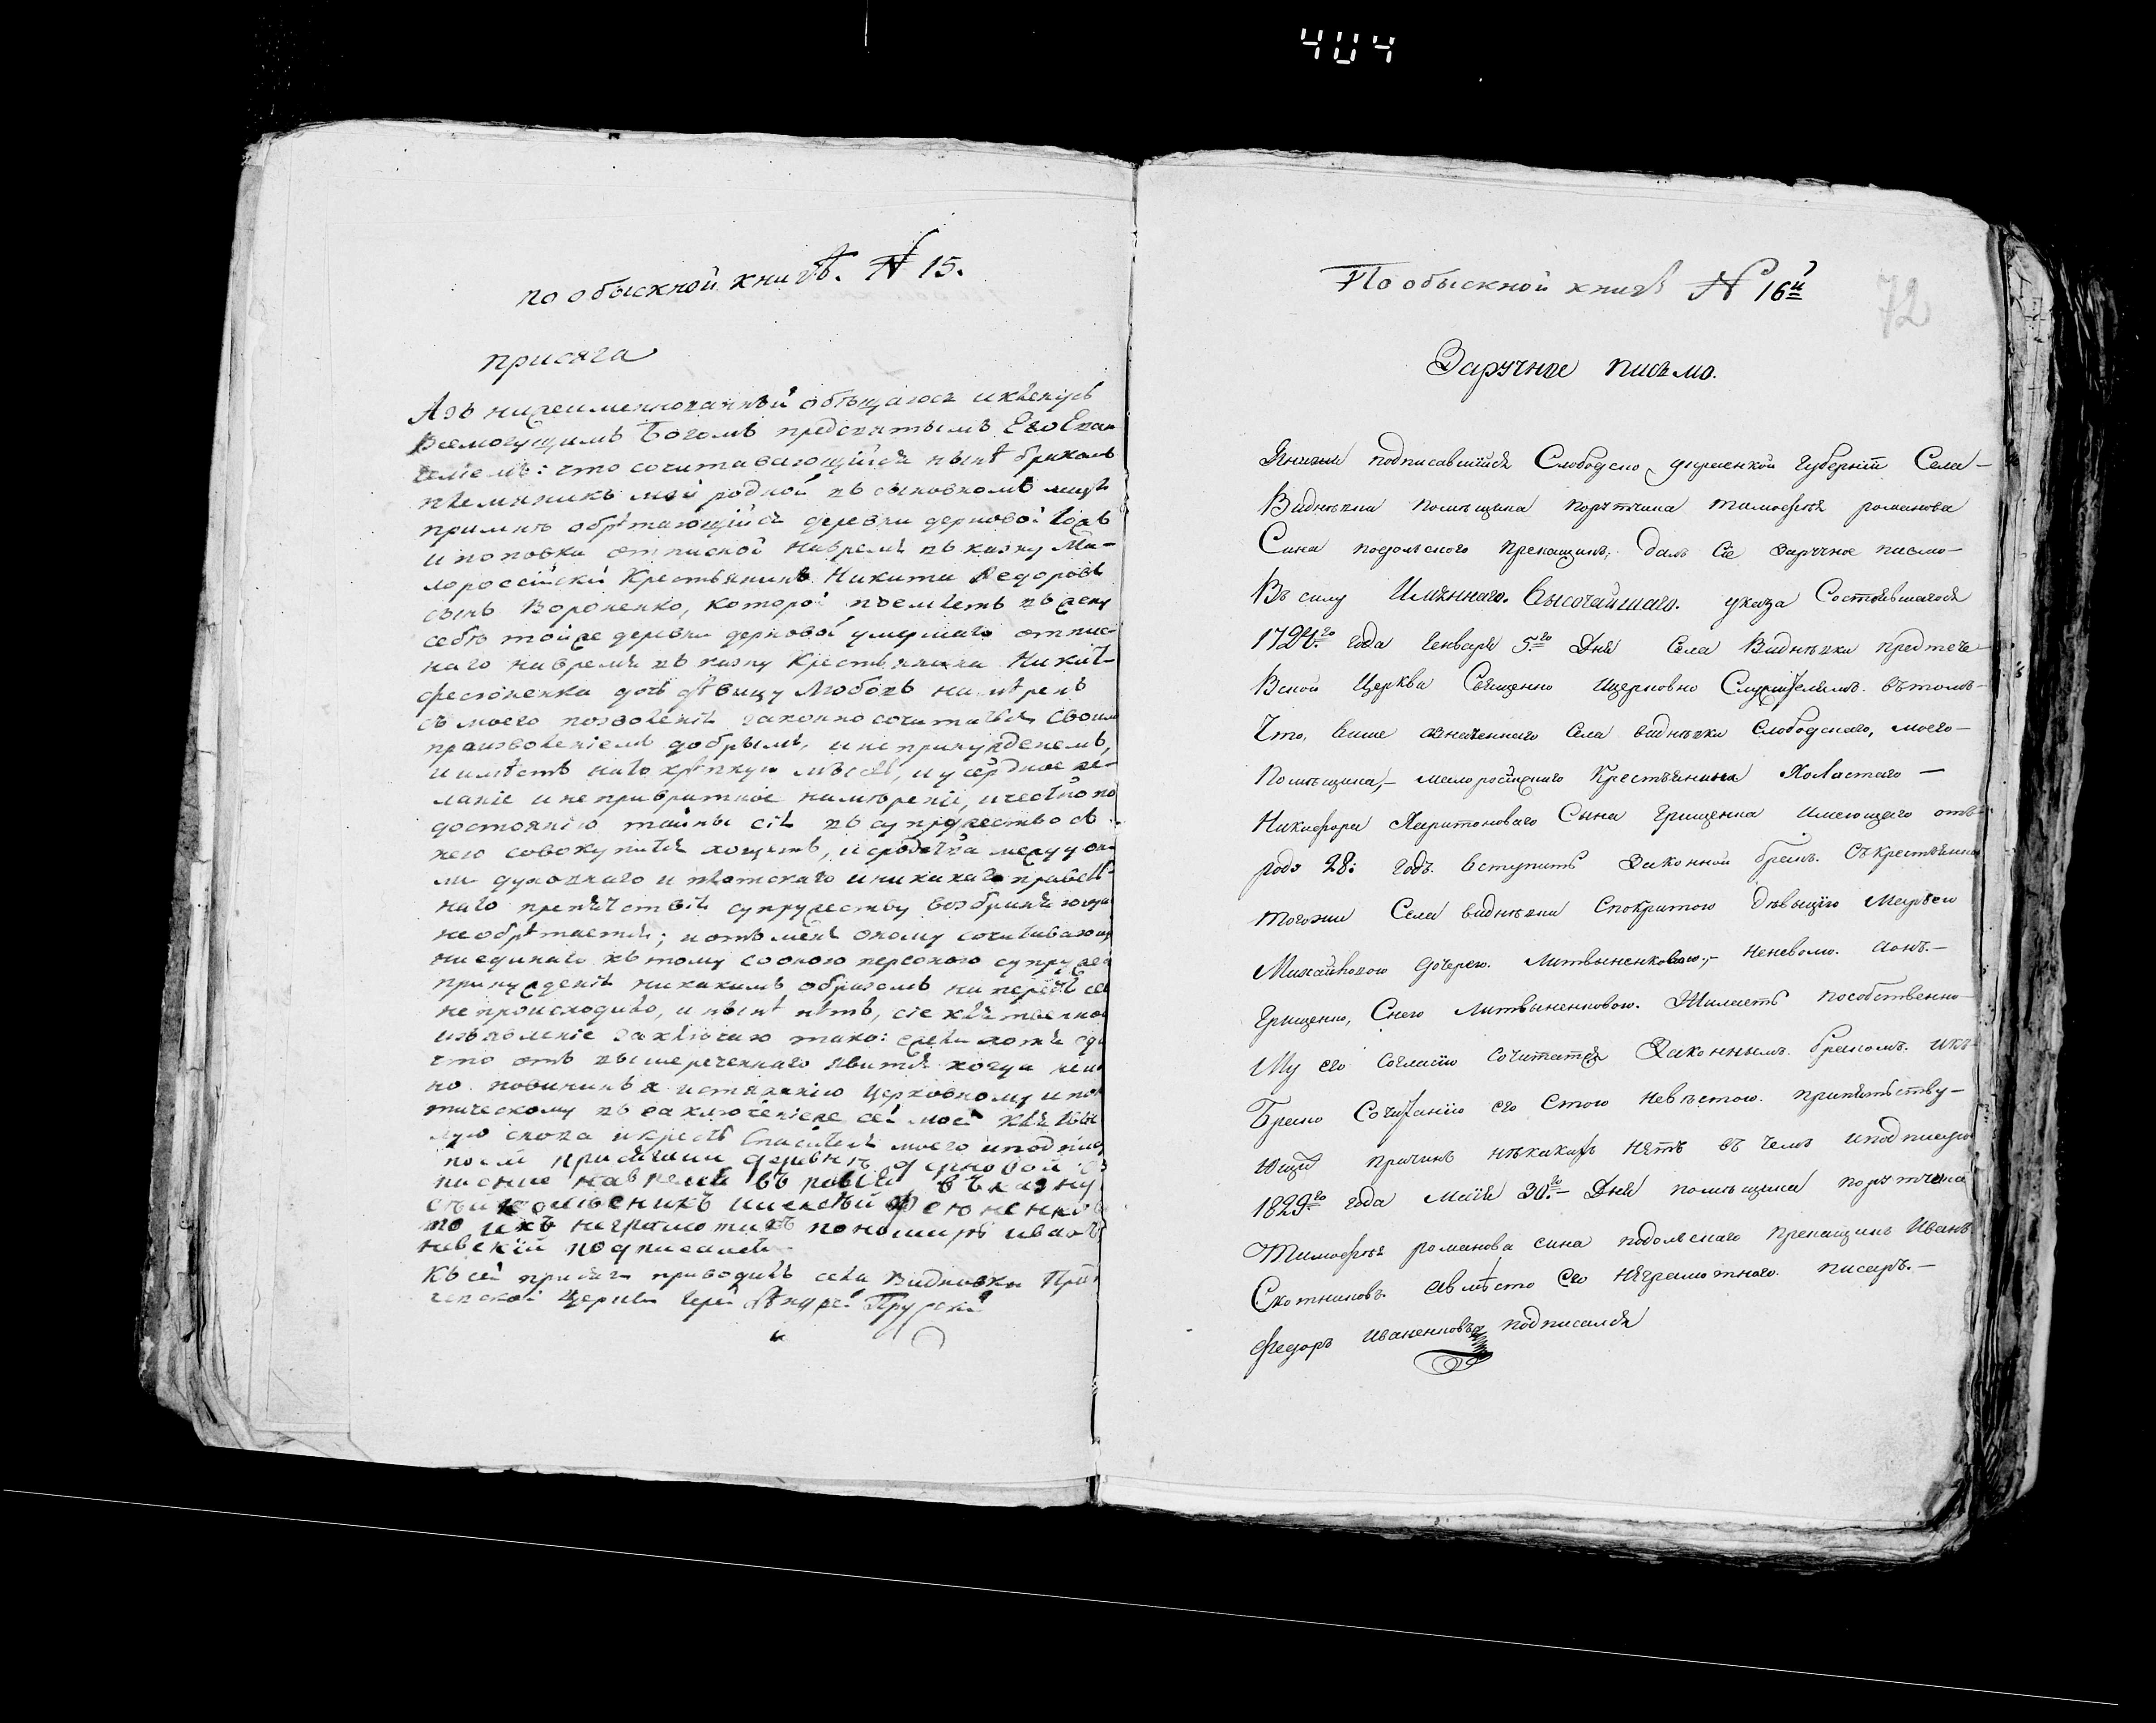 404
по обыскной книгѣ. № 15.
присяга
Азъ нижеименнованный обѣщаюсь и кленусь
Всемогущимъ Богомъ предсвятымъ Его Еван
гелiемъ: что сочитавающiйся нынѣ бракомъ
племянникъ мой родной въ сыновномъ
обрѣтающiйся деревни дерновой
отписной навремя въ казну Ма-
лороссiйскiй Крестьянинъ Никита Ѳедоровъ
сынъ Вороненко, которой поемлетъ въ жену
себѣ тойже деревни дерновой умершаго отпис-
наго навремя въ казну Крестьянина Никит-
дочь дѣвицу Любовь намѣренъ
съ моего позволенiя законно сочитатися своим
произволенiемъ добрымъ, и не принужденемъ,
и имѣетъ на то крѣпкую мысль, и усердное же-
ланiе и не превратное намѣренiе, и честно по
достоянiю тайны сiя въ супружество съ
нею совокупится хощетъ, и сродства между
ми духовнаго и плотскаго и никакаго правель-
наго препятствiя супружеству возбраняюща
не обрѣтается; и отъ мене оному сочитаваю
ни единаго къ тому со оною персоною супруже
принужденiя никакимъ образомъ ни передъ се
не происходило, и нынѣ нѣтъ, сiе клятвенно
изъявленiе заключаю тако: ежели хотя од
что отъ вышереченнаго явится когда
но повиненъ я истязанiю церковному и пол
тическому въ заключенiеже сей моей клятвы
цѣлую слова и крестъ Спасителя моего и подпис
деревнѣ дерновой
навремя въ казну
Феюненко
ихъ неграмотихъ пономарь ивапъ
невскiй подписался
Къ сей присягѣ приводилъ села Видновки Пред
теческой Церкви Iерей Андрей Прускiй
По обыскной книгѣ № 16й
72
Заручное письмо.
Янижей подписавшiйся Слободско украенской губернiи Села-
Виднѣвки помѣщика порутчика тимофѣя романова
Сина подолского прекащикъ, далъ Сiе заручное писмо-
Въ силу Имяннаго. Высочайшаго. указа Состоявшагося
1724го года Генваря 5го Дня Села Виднѣвки предтече
Вской Церкви Священно ицерковно Служителямъ. вътомъ-
Что, више означеннаго Села виднѣвки Слободскаго, моего-
Помѣщика,- малоросiйскаго Крестьянина Холастаго -
Никифора Харитоноваго Сына Грищенка имеющаго отъ
родо 28: годъ. вступить Законной бракъ. Съкрестьянкою
тогожи Села виднѣвки Спокритою дѣвыцiю Маръею
Михайловою дочерею. Литвыненковою.,- неневолю. аонъ.-
Грищенко, Снею Литвыненковою. Желаетъ пособственно-
Му его согласiю сочитатся Законнымъ. бракомъ. икъ
Браку Сочитанiю его Стою невѣстою. припятьству-
Щихъ причинъ нѣкакихъ нѣтъ въ чемъ иподписуюсь
1829го года Маiя 30го- Дня помѣщика порутчика
Тимофѣя романова сина подолскаго прекащикъ Иванъ
Скотниковъ. авмѣсто его неграмотнаго. писаръ.-
Федоръ Иваненковъ подписался